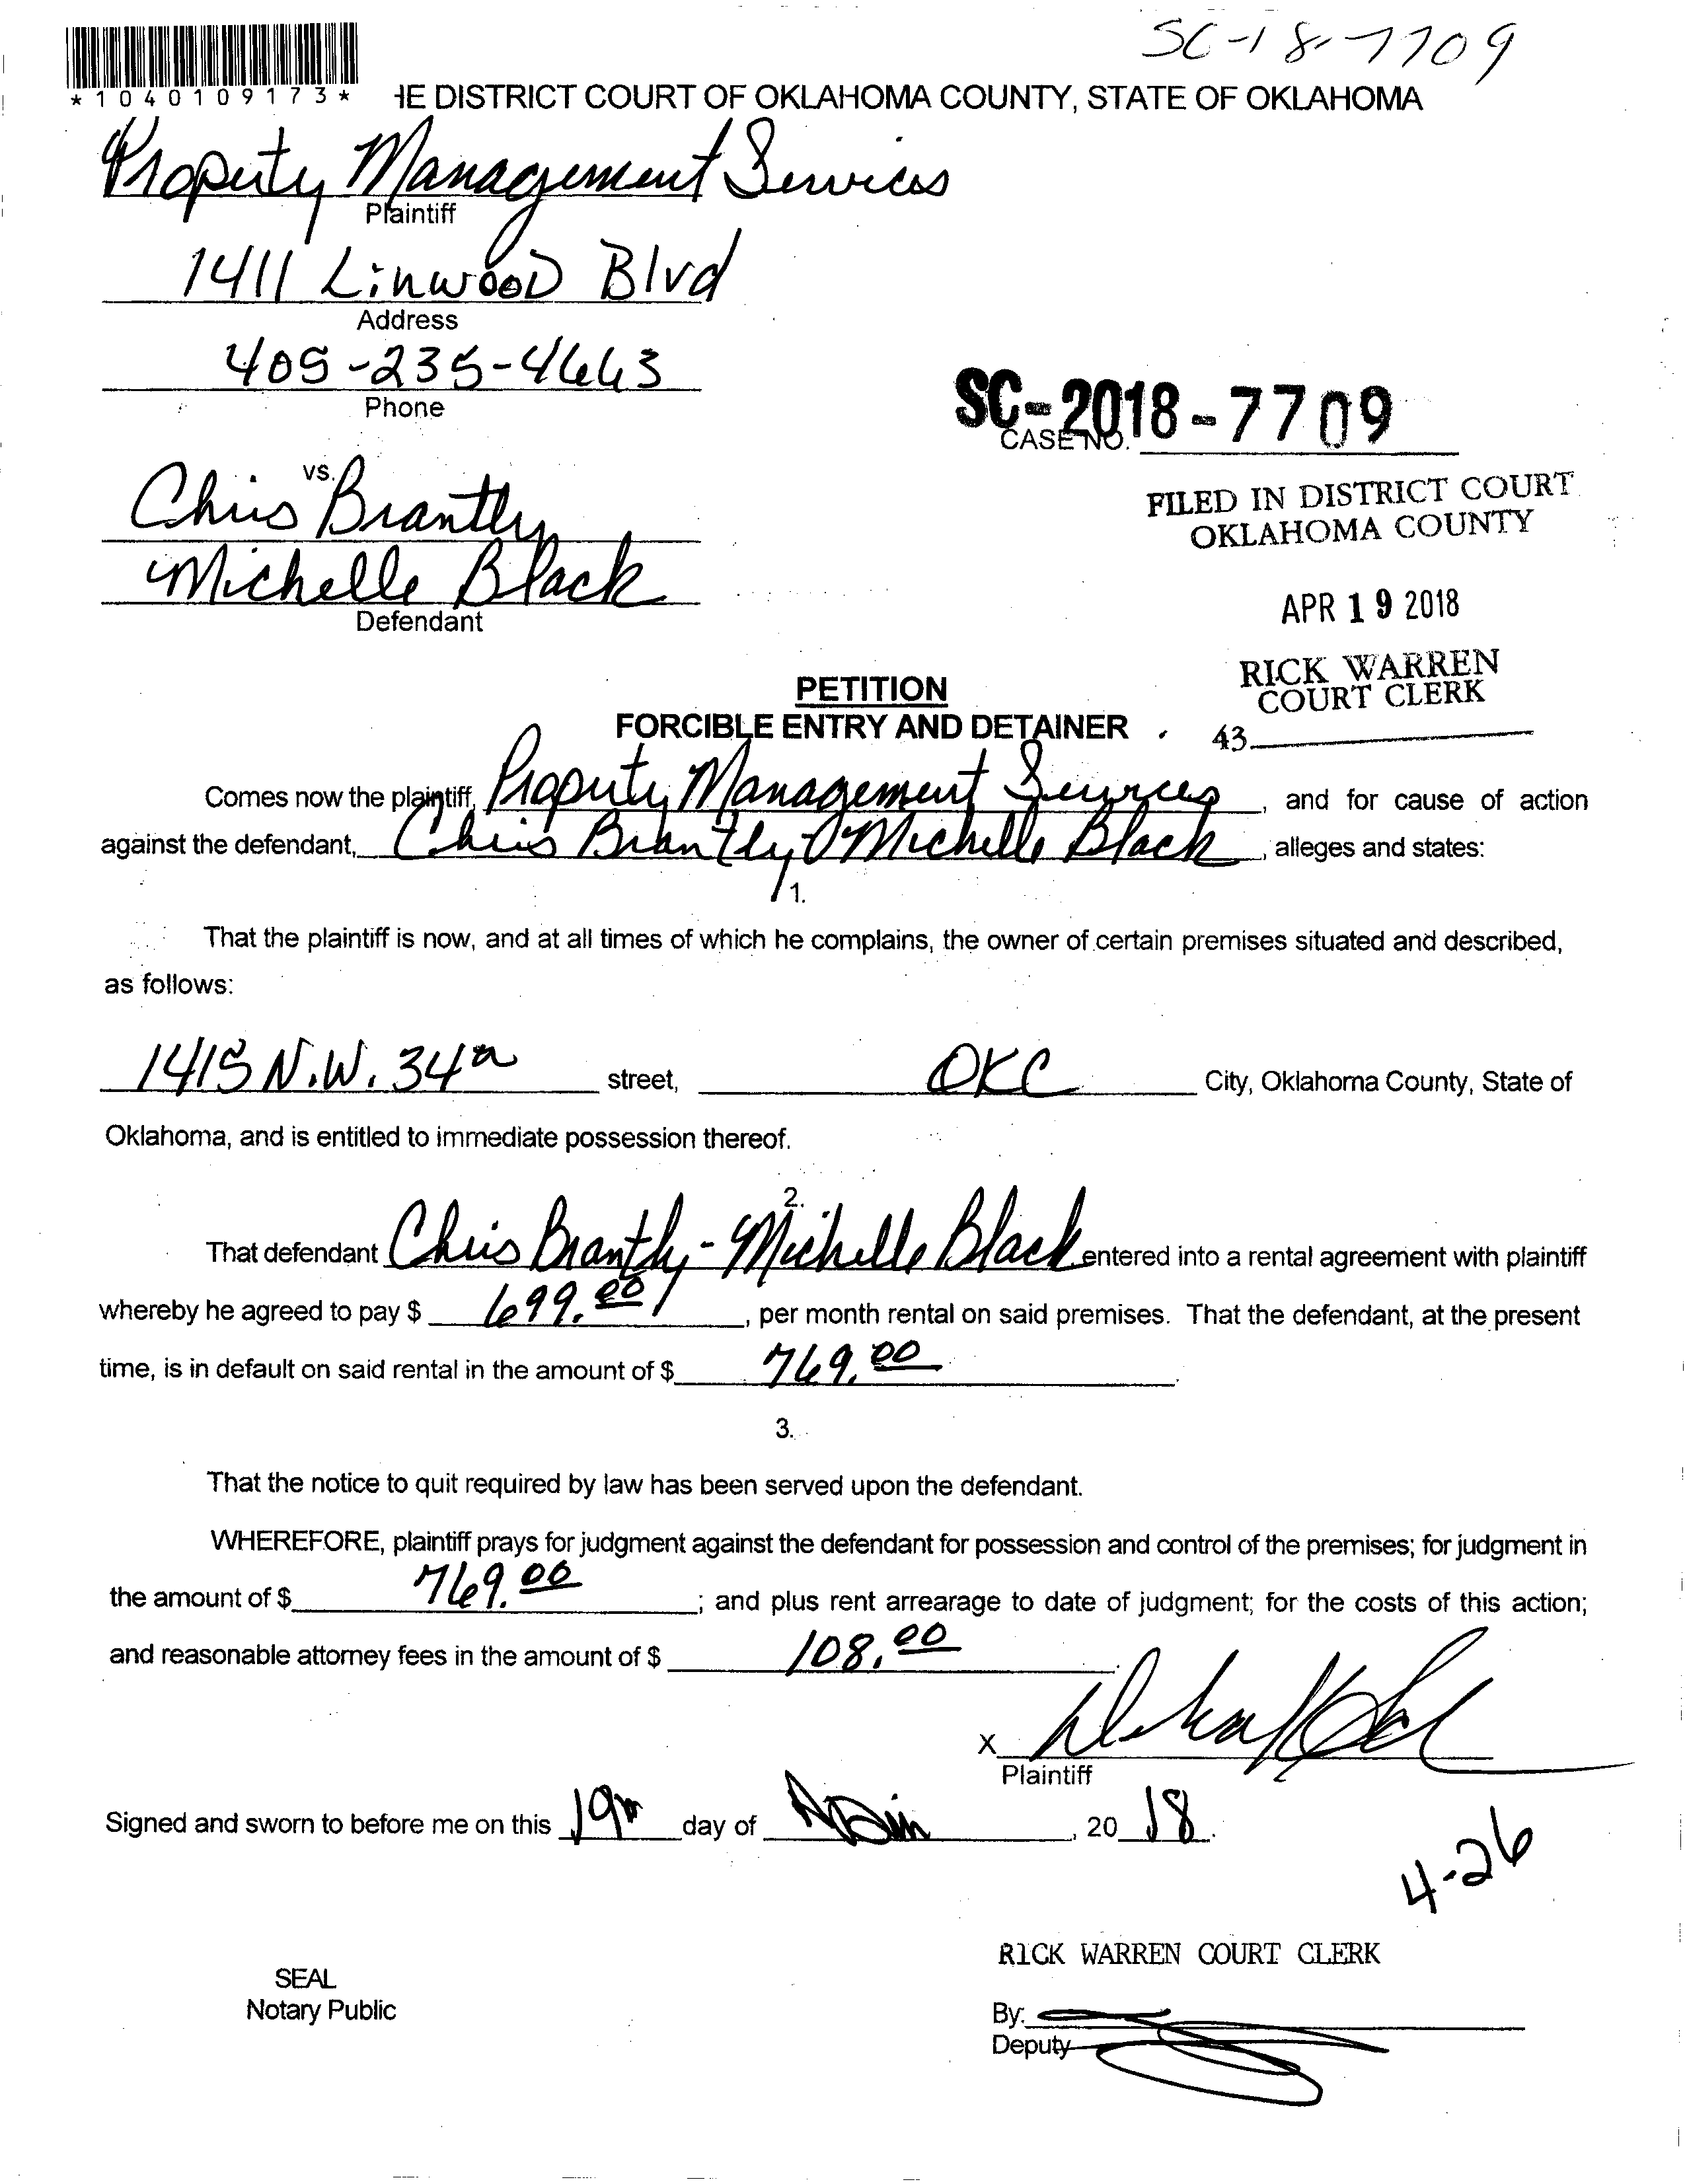 SC-18-7709
*1040109173*
HE DISTRICT COURT OF OKLAHOMA COUNTY, STATE OF OKLAHOMA
Property Management Services
Plaintiff
1411 Linwood Blvd
Address
405-235-4663
Phone
SC-2018-7709
CASE NO.
vs.
Chris Brantly
Michelle Black
Defendant
FILED IN DISTRICT COURT
OKLAHOMA COUNTY
APR 19 2018
RICK WARREN
COURT CLERK
43
PETITION
FORCIBLE ENTRY AND DETAINER
Comes now the plaintiff, Property Management Services, and for cause of action
against the defendant, Chris Brantly Michelle Black, alleges and states:
1.
That the plaintiff is now, and at all times of which he complains, the owner of certain premises situated and described,
as follows:
1415 N.W. 34th street, OKC City, Oklahoma County, State of
Oklahoma, and is entitled to immediate possession thereof.
2.
That defendant Chris Brantly - Michelle Black entered into a rental agreement with plaintiff
whereby he agreed to pay $ 699.00, per month rental on said premises. That the defendant, at the present
time, is in default on said rental in the amount of $ 769.00.
3.
That the notice to quit required by law has been served upon the defendant.
WHEREFORE, plaintiff prays for judgment against the defendant for possession and control of the premises; for judgment in
the amount of $ 769.00; and plus rent arrearage to date of judgment; for the costs of this action;
and reasonable attorney fees in the amount of $ 108.00.
X
Plaintiff
Signed and sworn to before me on this 19th day of , 2018.
4-26
RICK WARREN COURT CLERK
SEAL
Notary Public
By:
Deputy